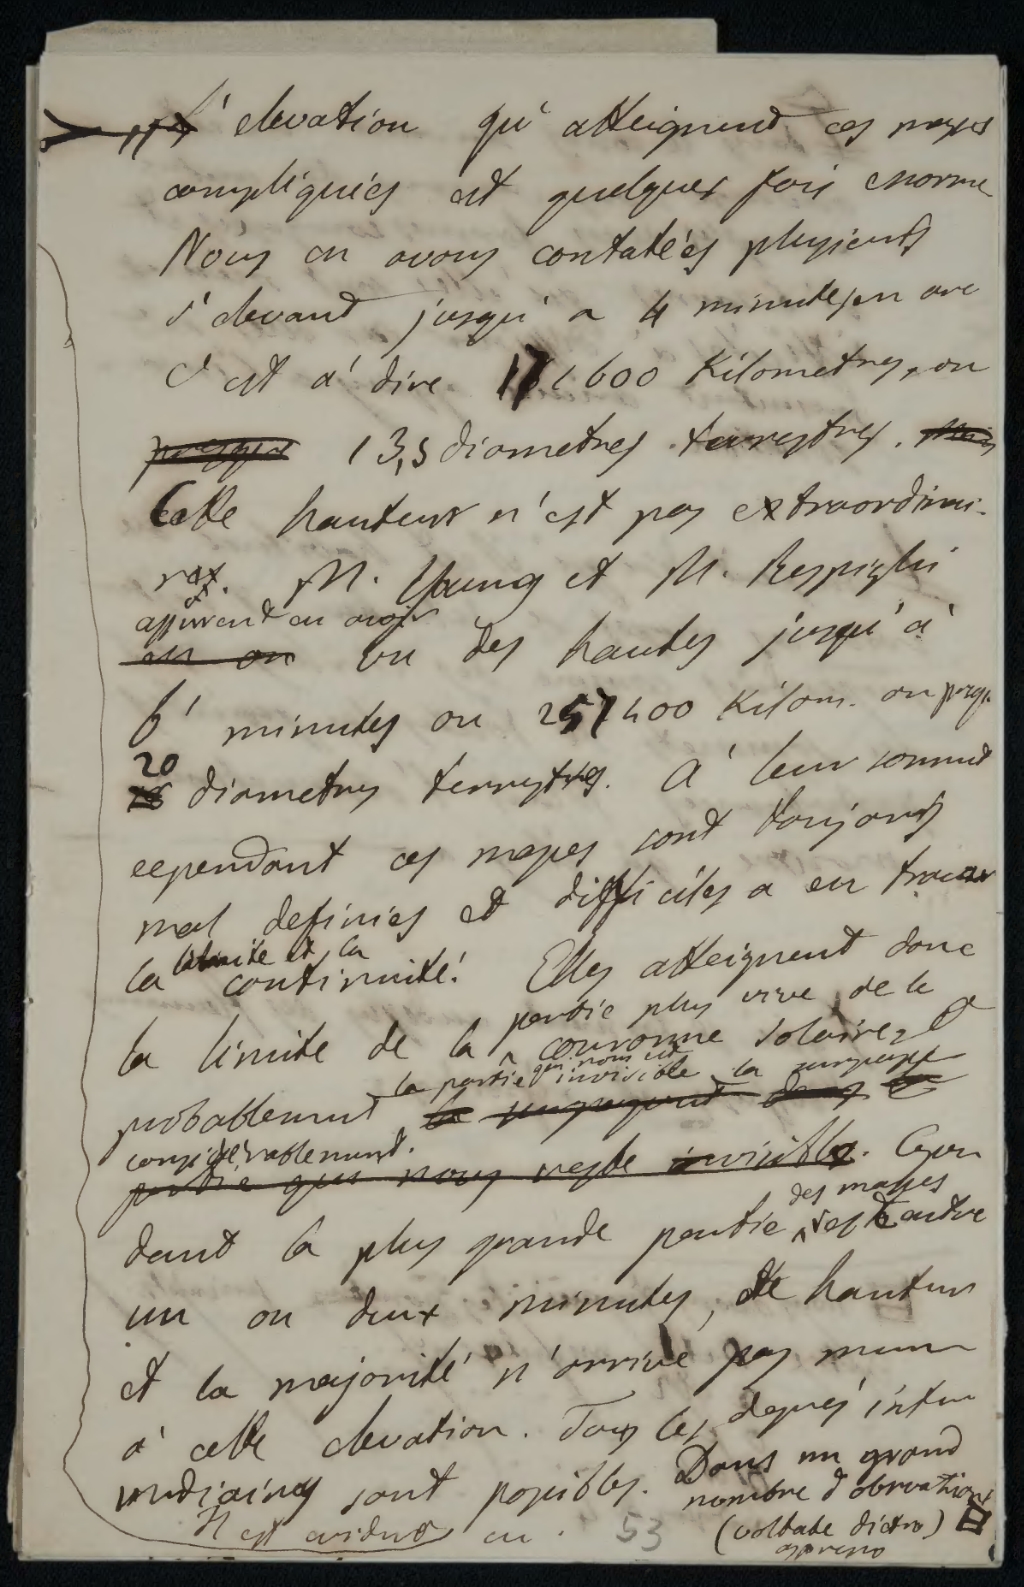 L'elevation qu'atteignent ces masses
compliquées est quelques fois enorme
Nous en avons contatées plusieurs
s'elevant jusqu'a 4 minutes en arc
c'est a dire 171600 Kilometres, ou
presque 13,5 diametres terrestres.
Cette hauteur n'est pas extraordinai-
re. M. Young et M. Respighi
assurent en avoir
en on vu des hautes jusqu'à
6' minutes ou 257400 Kilom. ou presque
20
diametres terrestres. A leur sommet
cependant ces masses sont toujours
mal definies et difficiles a en tracer
limite et la
la continuité! Elles atteignent donc
partie plus vive de la
la limite de la couronne solaire, et
la partie qui nous est invisible la surpasse
probablement la surpassent dans la
considérablement.
partie qui nous reste invisible. Cepen
des masses
dant la plus grande partie reste entre
un ou deux minutes, de hauteur
et la majorité n'arrive pas meme
à cette elevation. Tous les degrés inter
mediaires sont possibles. Dans un grand
nombre d'observations
Il est evident en (voltate dietro)
53 appresso II